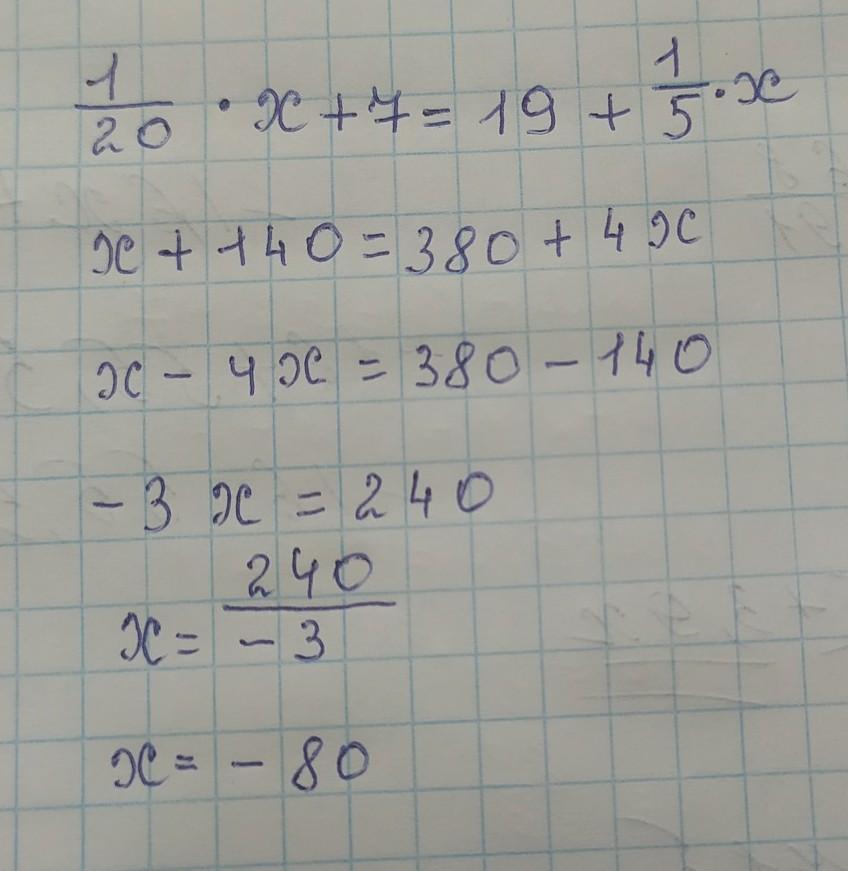 1/20 · x + 7 = 19 + 1/5 · x
x + 140 = 380 + 4x
x - 4x = 380 - 140
-3x = 240
x = 240/-3
x = -80